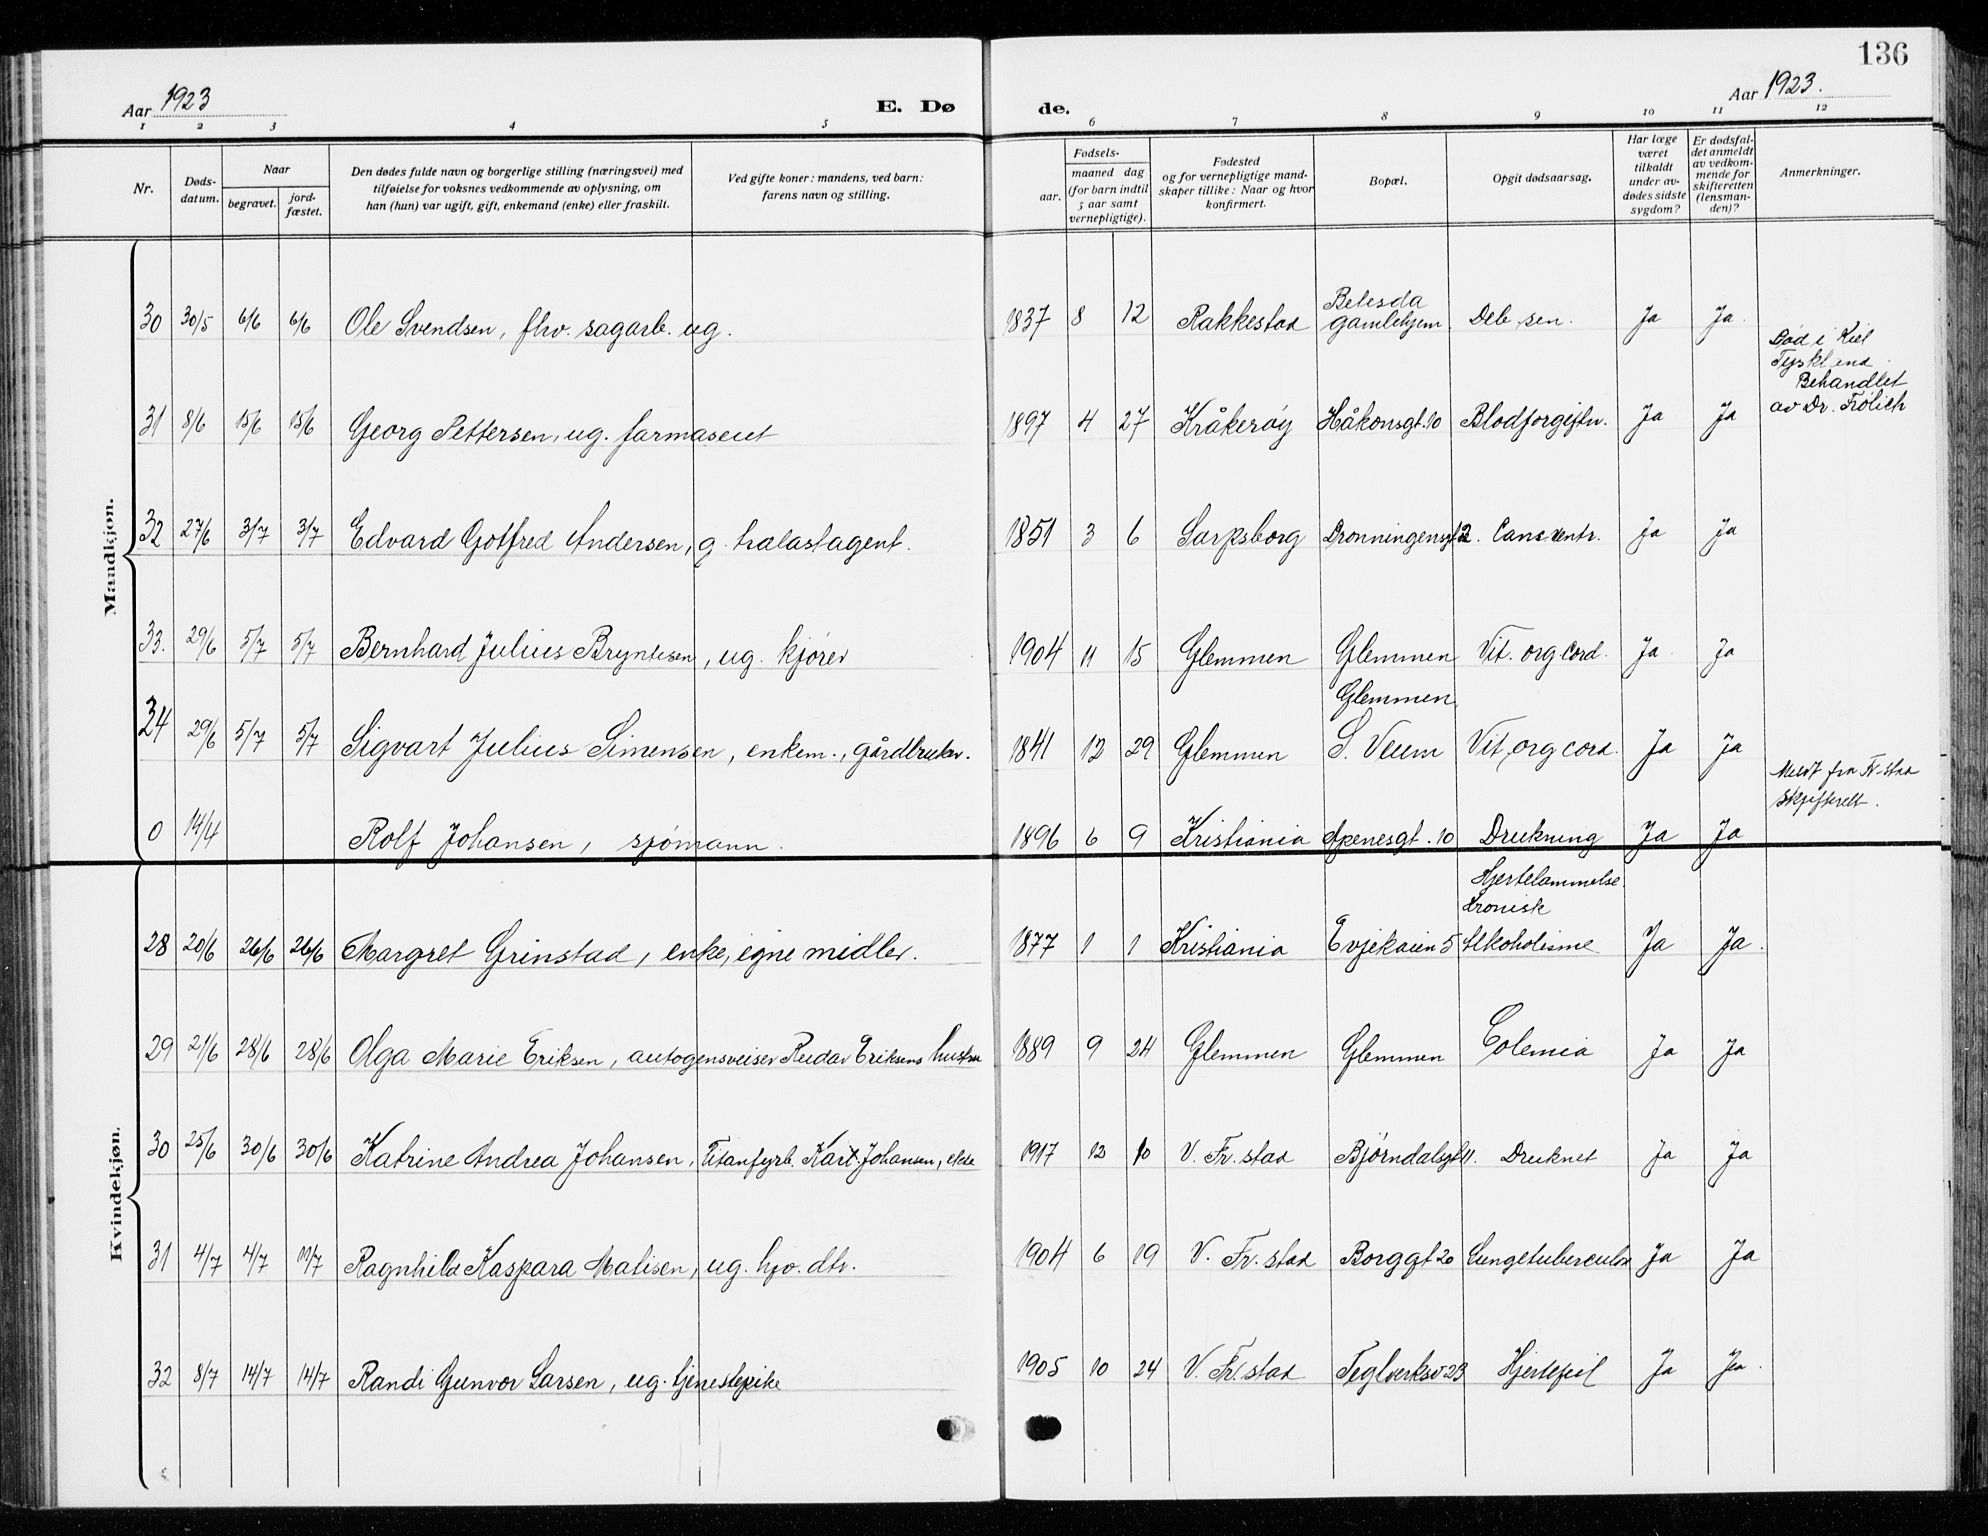 136
Aar 1923 E. Dø de. Aar 1923.
1 2 3 4 5 6 7 8 9 10 11 12
Nr. Døds-datum. Naar begravet. jord-fæstet. Den dødes fulde navn og borgerlige stilling (næringsvei) med tilføielse for voksnes vedkommende av oplysning, om han (hun) var ugift, gift, enkemand (enke) eller fraskilt. Ved gifte koner: mandens, ved barn: farens navn og stilling. Fødsels- aar. maaned dag (for barn indtil 5 aar samt vernepligtige). Fødested og for vernepligtige mand-skaper tillike: Naar og hvor konfirmert. Bopæl. Opgit dødsaarsag. Har læge været tilkaldt under av-dødes sidste sygdom? Er dødsfal-det anmeldt av vedkom-mende for skifteretten (lensman-den)? Anmerkninger.
Mandkjøn.
30 30/5 6/6 6/6 Ole Svendsen, fhv. sagarb. ug. 1837 8 12 Rakkestad Betesda gamlehjem Deb. sen. Ja Ja.
31 8/6 15/6 15/6 Georg Pettersen, ug. farmaseut 1897 4 27 Kråkerøy Håkonsgt. 10 Blodforgiftn. Ja Ja Død i Kiel Tyskland Behandlet av Dr. Frölich
32 27/6 3/7 3/7 Edvard Gotfred Andersen, g. tralastagent. 1851 3 6 Sarpsborg Dronningensgt 2. Canc ventr. Ja Ja
33. 29/6 5/7 5/7 Bernhard Julius Bryntesen, ug. kjører 1904 11 15 Glemmen Glemmen Vit. org cord. Ja Ja
34 29/6 5/7 5/7 Sigvart Julius Simensen, enkem., gårdbruker. 1841 12 29 Glemmen Glemmen S. Veum Vit. org cord. Ja Ja
0 14/4 Rolf Johansen, sjømann. 1896 6 9 Kristiania Apenesgt. 10 Drukning Ja Ja Meldt fra Fr.stad Skifterett.
Kvindekjøn.
28 20/6 26/6 26/6 Margret Grinstad, enke, egne midler. 1877 1 1 Kristiania Evjekaien 5 Hjertelammelse. Kronisk Alkoholisme Ja Ja.
29 21/6 28/6 28/6 Olga Marie Eriksen, autogensveiser Reidar Eriksens hustru 1889 9 24 Glemmen Glemmen Colemia Ja Ja
30 25/6 30/6 30/6 Katrine Andrea Johansen, Titanfyrb. Karl Johansen, 1917 12 10 V. Fr. stad Bjørndalsgt 11. Druknet Ja Ja
31 4/7 4/7 11/7 Ragnhild Kaspara Matisen, ug. hjv. dtr. 1904 6 19 V. Fr. stad Borggt 20 Lungetuberculos Ja Ja
32 8/7 14/7 14/7 Randi Gunvor Larsen, ug. tjenestepike 1905 10 24 V. Fr. stad Teglverksv 23 Hjertefeil Ja Ja.